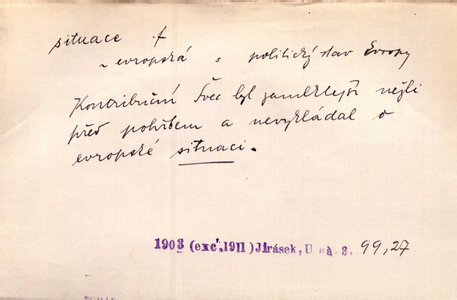 situace f
~ evropská s politický stav Evropy
Kontribuční Švec byl zamklejší nežli
před pohřbem a nevykládal o
evropské situaci.
1903 (exc. 1911) Jirásek, U nás 3. 99,27